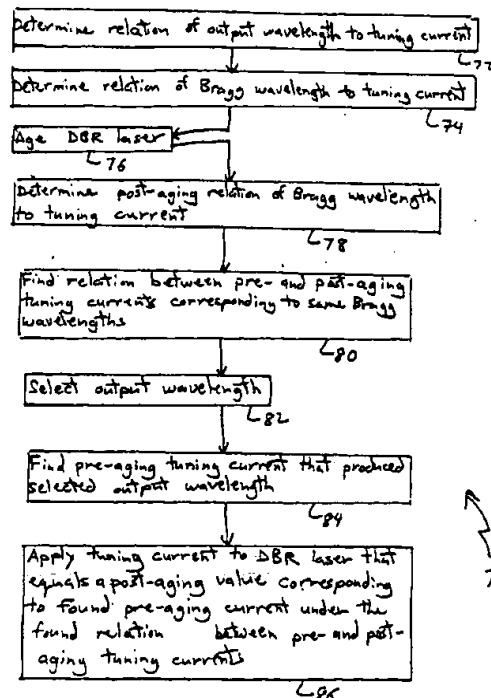 Determine relation of output wavelength to tuning current
72
Determine relation of Bragg wavelength to tuning current
74
Age DBR laser
76
Determine post-aging relation of Bragg wavelength
to tuning current
78
Find relation between pre- and post-aging
tuning currents corresponding to same Bragg
wavelengths
80
Select output wavelength
82
Find pre-aging tuning current that produced
selected output wavelength
84
Apply tuning current to DBR laser that
equals a post-aging value corresponding
to found pre-aging current under the
found relation between pre- and post-
aging tuning currents
86